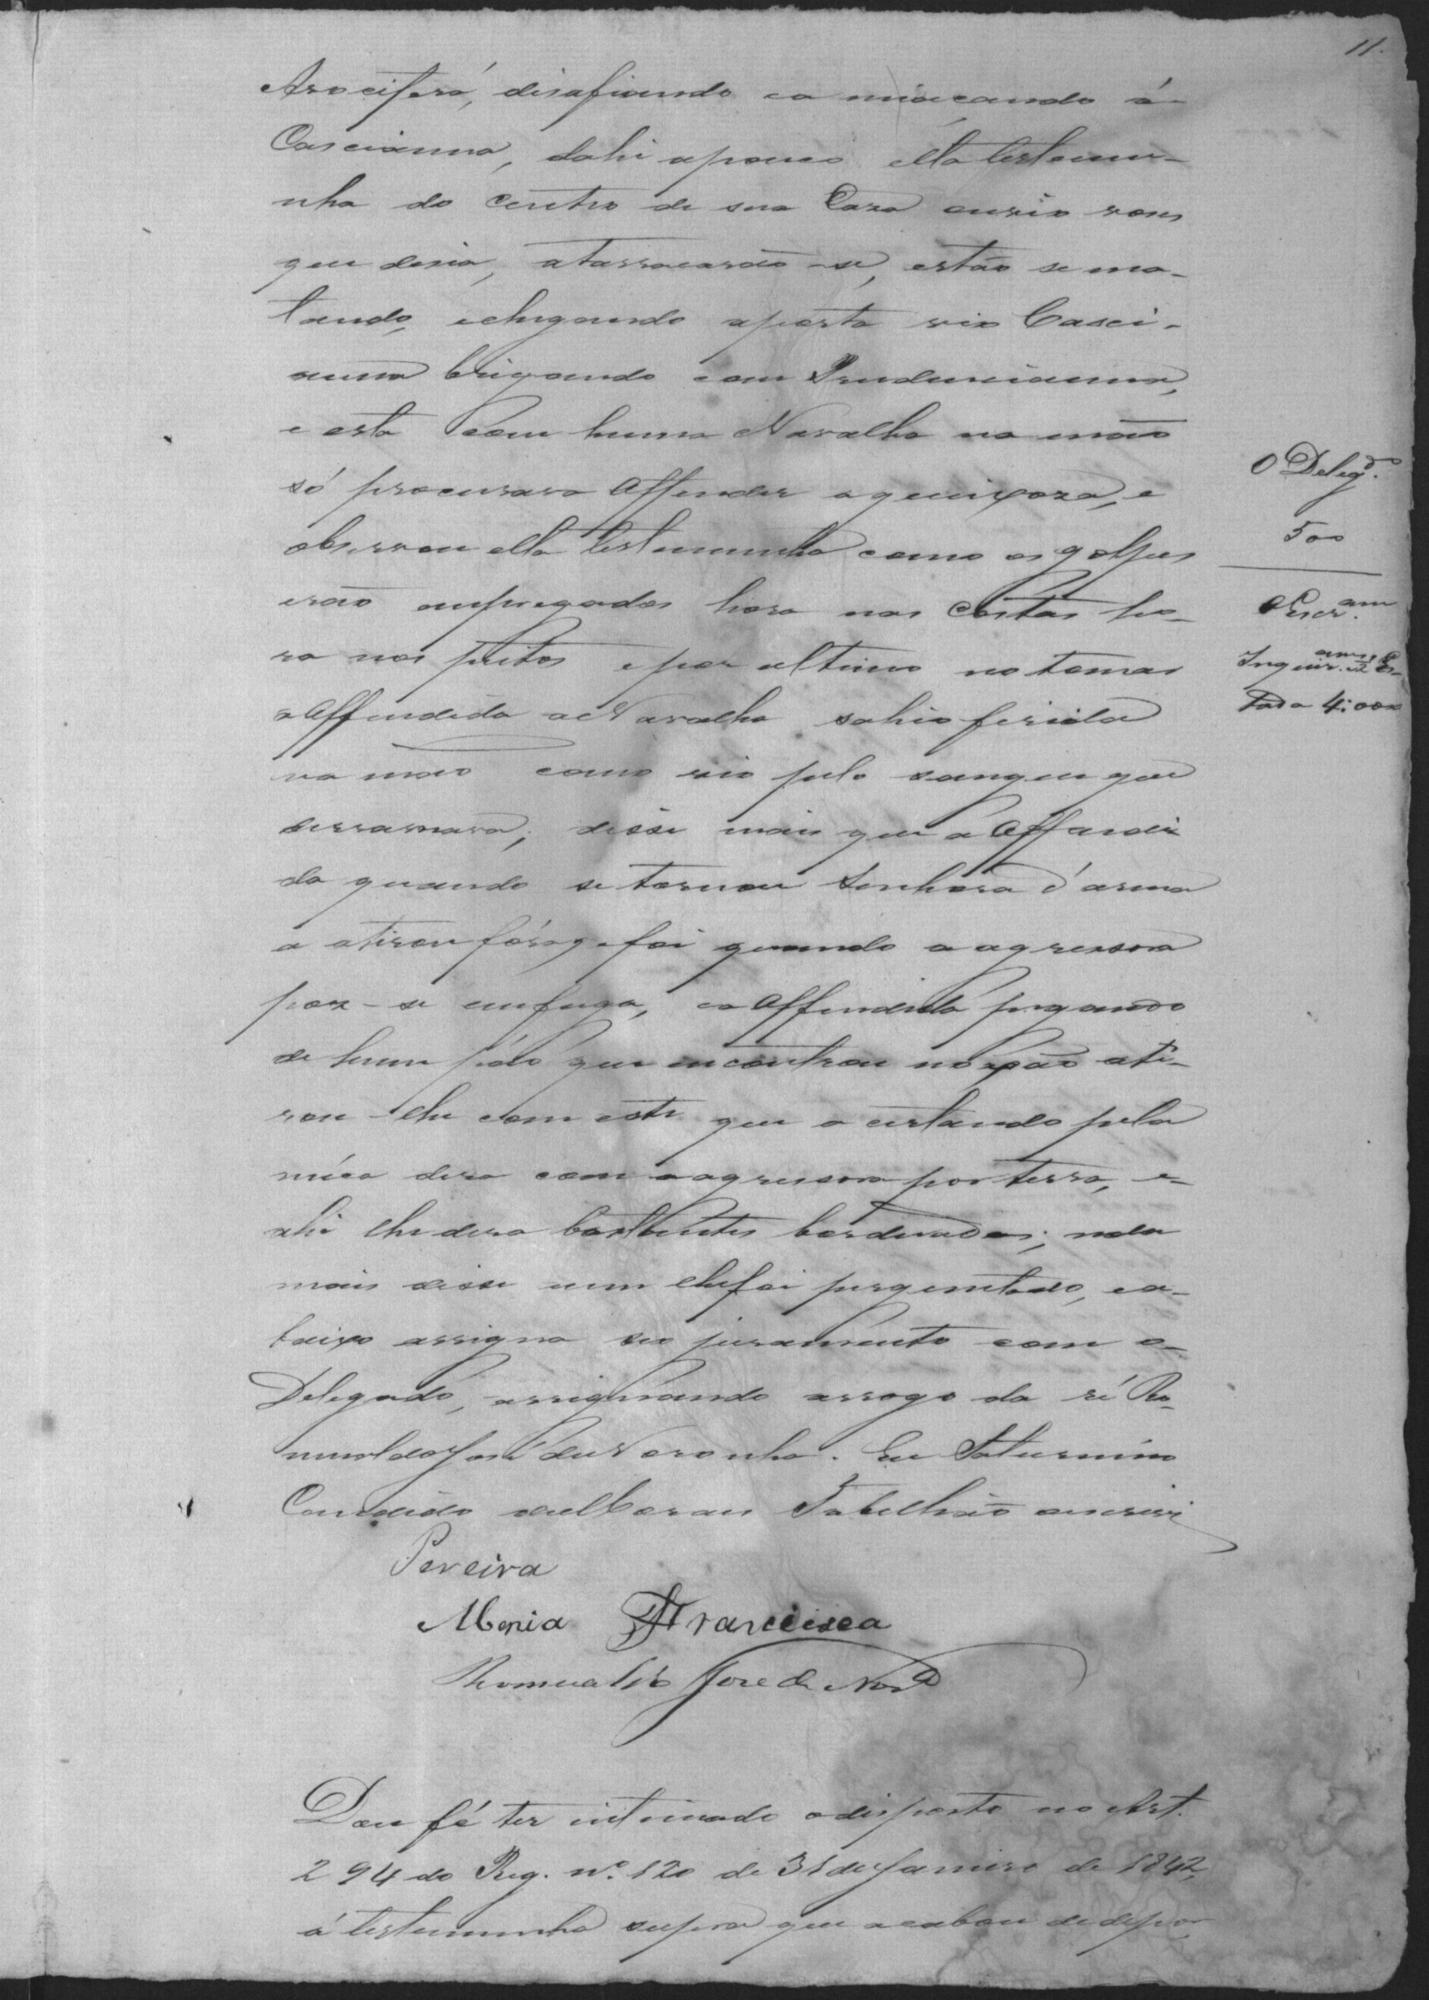 11.
desafiando e a miaçando á
Cascianna, dahi apouco ella testemu-
nha do Centro de sua Caza ouvio vozes
que disia, atarracarão-se, estão se ma-
tando, echegando aporta vio Casci-
anna brigando com Prudencianna,
e esta com huma Navalha na mão
só procurava Offender aqueixoza, e
observou ella testemunha como os golpes
erão empregados hora nas Costas ho-
ra nos peitos epor ultimo no tomar
a Offendida a Navalha sahio ferida
na mão como vio pelo sangue que
derramava; disse mais que a Offendi
da quando se tornou Senhora d'arma
a atirou fóra, e foi quando a agressora
poz-se emfuga, e a Offendida pegando
de hum páo que encontrou no xão ati-
rou-lhe com este que acertando pela
nuca dera com a agressora por terra, e
ahi lhe dera bastantes bordoadas; nada
mais disse nem lhe foi perguntado, ea-
baixo assigna seo juramento com o
Delegado, assignando arrogo da ré Ro-
mualdo José de Noronha. Eu Saturnino
Candido Tabellião escrevi
Pereira
Maria Francisca
Romualdo Jose de Nor.ª
Dou fé ter intimado odisposto no Art.
294 do Reg. nº 120 de 31 de Janeiro de 1842,
á testemunha supra que acabou de depor
O Deleg.º
500
OEscr.am
Inquir.
tada 4:000